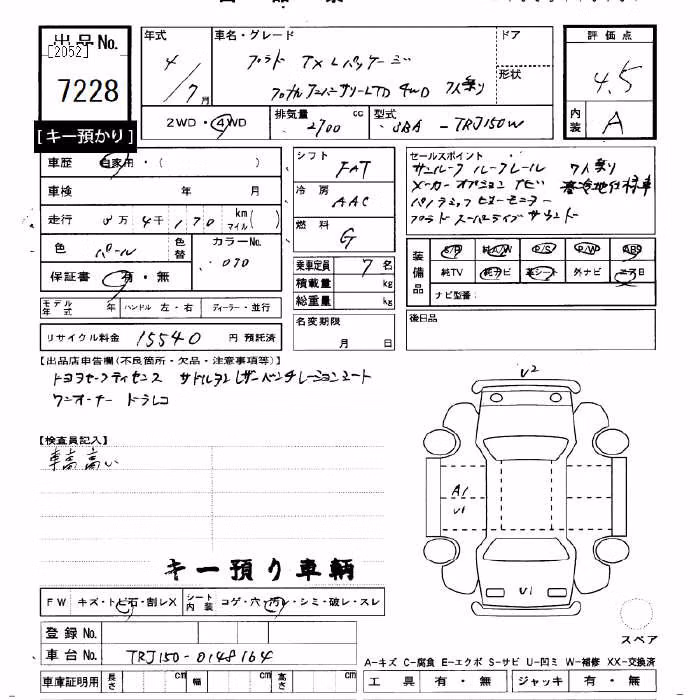 出品No.
[2052]
7228
[キー預かり]
年式
4/7月
車名・グレード
プラド TX Lパッケージ
70thアニバーサリーLTD 4WD 7人乗り
ドア
形状
評価点
4.5
内装
A
2WD・4WD
排気量
2700 cc
型式
3BA - TRJ150W
車歴
自家用・( )
車検
年 月
走行
万 4千 170 km マイル( )
色
パール
色替
カラーNo.
070
保証書
有・無
シフト
FAT
冷房
AAC
燃料
G
乗車定員 7名
積載量 kg
総重量 kg
セールスポイント
サンルーフ ルーフレール 7人乗り
メーカーオプションナビ 寒冷地仕様車
パノラミックビューモニター
プラド スーパーライブサウンド
装備品
純TV 純ナビ 革シート 外ナビ
ナビ型番:
モデル年式 年
ハンドル 左・右
ディーラー・並行
リサイクル料金 15540 円 預託済
名変期限
月 日
後日品
【出品店申告欄(不良箇所・欠品・注意事項等)】
トヨタセーフティセンス サドルタン レザーベンチレーションシート
ワンオーナー ドラレコ
【検査員記入】
車高高い
U2
A1
U1
U1
キー預り車輌
FW
キズ・トビ石・割レX
シート内装
コゲ・穴・汚レ・シミ・破レ・スレ
スペア
登録No.
車台No.
TRJ150-0148164
A-キズ C-腐食 E-エクボ S-サビ U-凹ミ W-補修 XX-交換済
車庫証明用
長さ cm
幅 cm
高さ cm
工具 有・無
ジャッキ 有・無